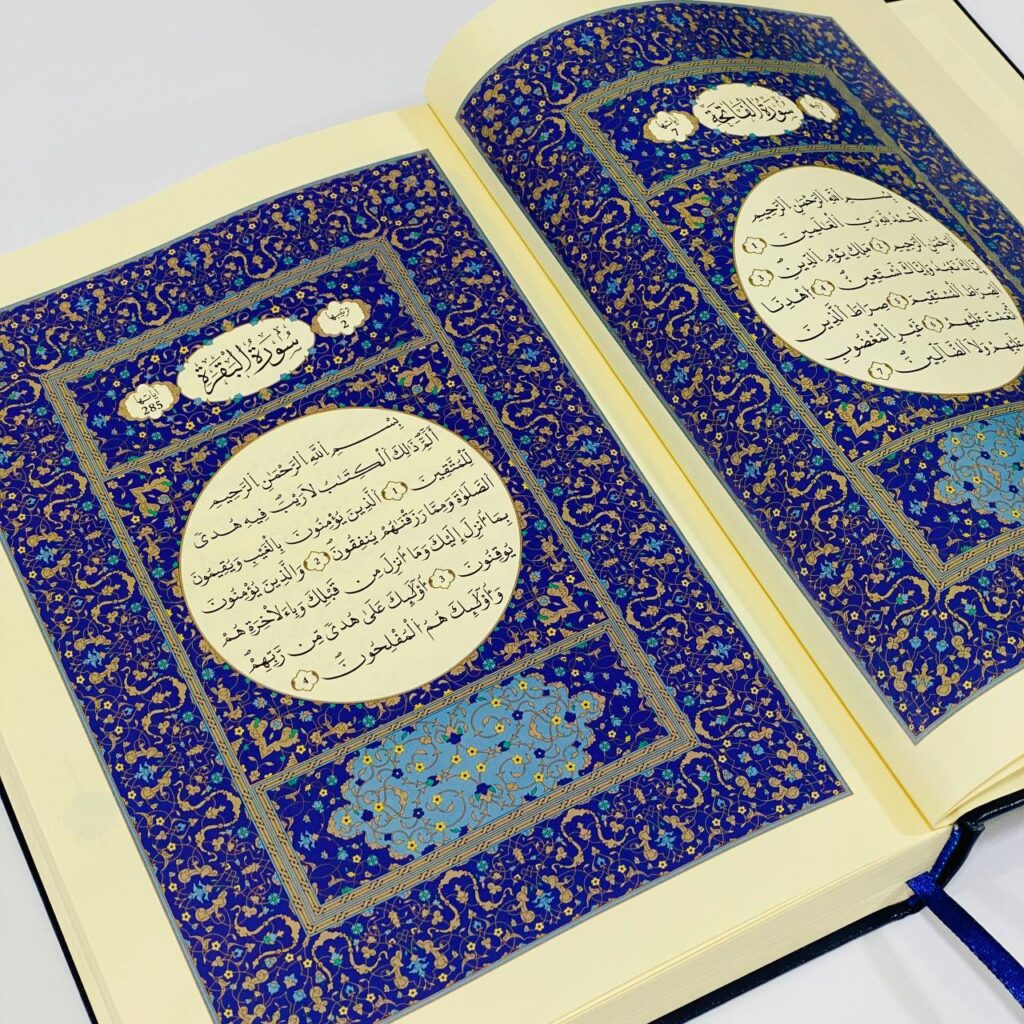 سُورَةُ الْفَاتِحَةِ
آياتها
7
بِسْمِ اِللَّهِ اِلرَّحْمَٰنِ اِلرَّحِيمِ
اِلْحَمْدُ لِلهِ رَبِّ اِلْعَٰلَمِينَ 1
اَلرَّحْمَٰنِ اِلرَّحِيمِ 2 مَلِكِ يَوْمِ اِلدِّينِ 3
إِيَّاكَ نَعْبُدُ وَإِيَّاكَ نَسْتَعِينُ 4 اُهْدِنَا
اَلصِّرَٰطَ اَلْمُسْتَقِيمَ 5 صِرَٰطَ اَلذِينَ
أَنْعَمْتَ عَلَيْهِمْ 6 غَيْرِ اِلْمَغْضُوبِ
عَلَيْهِمْ وَلَا اَلضَّآلِّينَ 7
2
سُورَةُ الْبَقَرَةِ
آياتها
285
بِسْمِ اِللَّهِ اِلرَّحْمَٰنِ اِلرَّحِيمِ
أَلَٓمِّٓ ذَٰلِكَ اَلْكِتَٰبُ لَا رَيْبَ فِيهِ هُدىً
لِّلْمُتَّقِينَ 1 اَلذِينَ يُؤْمِنُونَ بِالْغَيْبِ وَيُقِيمُونَ
اَلصَّلَوٰةَ وَمِمَّا رَزَقْنَٰهُمْ يُنفِقُونَ 2 وَالذِينَ يُؤْمِنُونَ
بِمَا أُنزِلَ إِلَيْكَ وَمَا أُنزِلَ مِن قَبْلِكَ وَبِالَاخِرَةِ هُمْ
يُوقِنُونَ 3 أُوْلَٰٓئِكَ عَلَىٰ هُدىً مِّن رَّبِّهِمْ
وَأُوْلَٰٓئِكَ هُمُ اُلْمُفْلِحُونَ 4